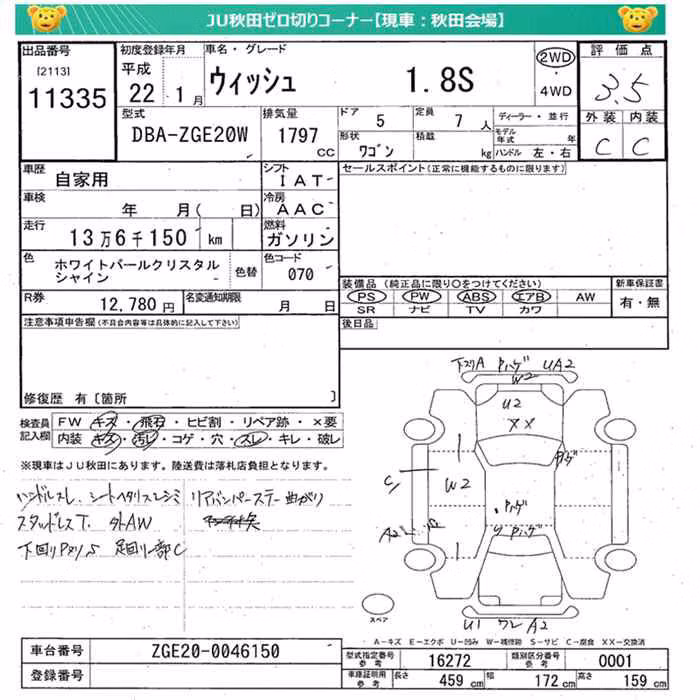 JU秋田ゼロ切りコーナー【現車：秋田会場】
出品番号 初度登録年月 車名・グレード 2WD 評価点
[2113] 平成 ウィッシュ 1.8S 3.5
11335 22 1月 4WD
外装 内装
型式 排気量 ドア 5 定員 7人 ディーラー・並行
DBA-ZGE20W 1797 CC 形状 ワゴン 積載 kg モデル年式 年 C C
ハンドル 左・右
車歴 自家用 シフト IAT セールスポイント(正常に機能するものに限ります)
車検 年 月( 日) 冷房 AAC
走行 13万6千150 km 燃料 ガソリン
色 ホワイトパールクリスタルシャイン 色替 - 色コード 070
装備品(純正品に限り○をつけてください) 新車保証書
PS PW ABS エアB AW 有・無
SR ナビ TV カワ
R券 12,780円 名変通知期限 月 日
後日品
注意事項申告欄(不具合内容等は具体的に記入して下さい)
修復歴 有 [箇所 ]
検査員記入欄 FW キズ・飛石・ヒビ割・リペア跡・×要
内装 キズ・汚レ・コゲ・穴・スレ・キレ・破レ
※現車はJU秋田にあります。陸送費は落札店負担となります。
ハンドルスレ シートヘタリスレシミ リアバンパーステー曲がり
スタッドレスT. 外AW
下回りPヌリS 足回り一部C
下ヌリA Pハゲ UA2
W2
U2
XX
Pハゲ
W2
Pハゲ
Pハゲ
U1 ワレ A2
スペア
A－キズ E－エクボ U－凹み W－補修跡 S－サビ C－腐食 XX－交換済
車台番号 ZGE20-0046150
登録番号
型式指定番号参考 16272 類別区分番号参考 0001
車庫証明用参考 長さ 459 cm 幅 172 cm 高さ 159 cm